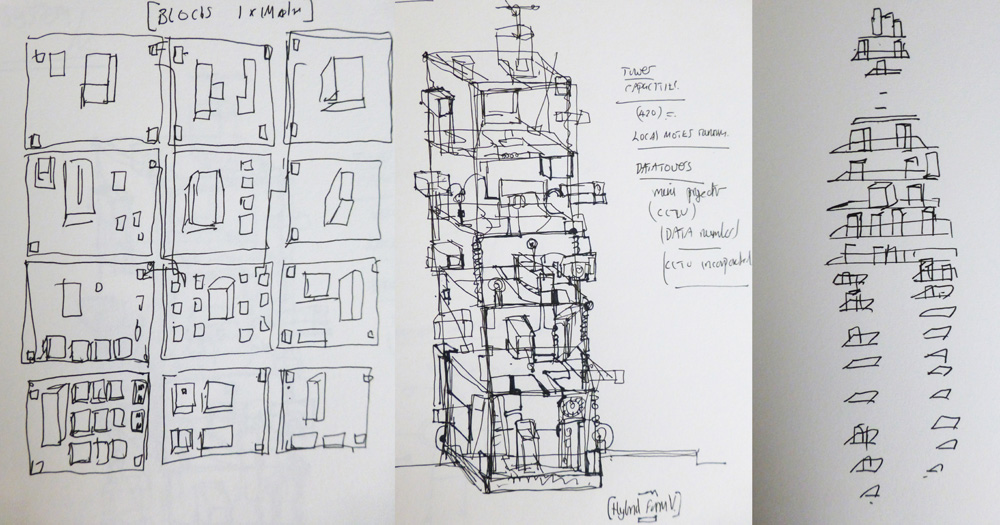 [BLOCKS 1 x 1 Meter]
TOWER
CAPACITIES.
(420) =
LOCAL MOTES random.
DATATOWERS
main projector
(CCTV)
(DATA number)
(CCTV incorporated
[Hybrid Form V.]